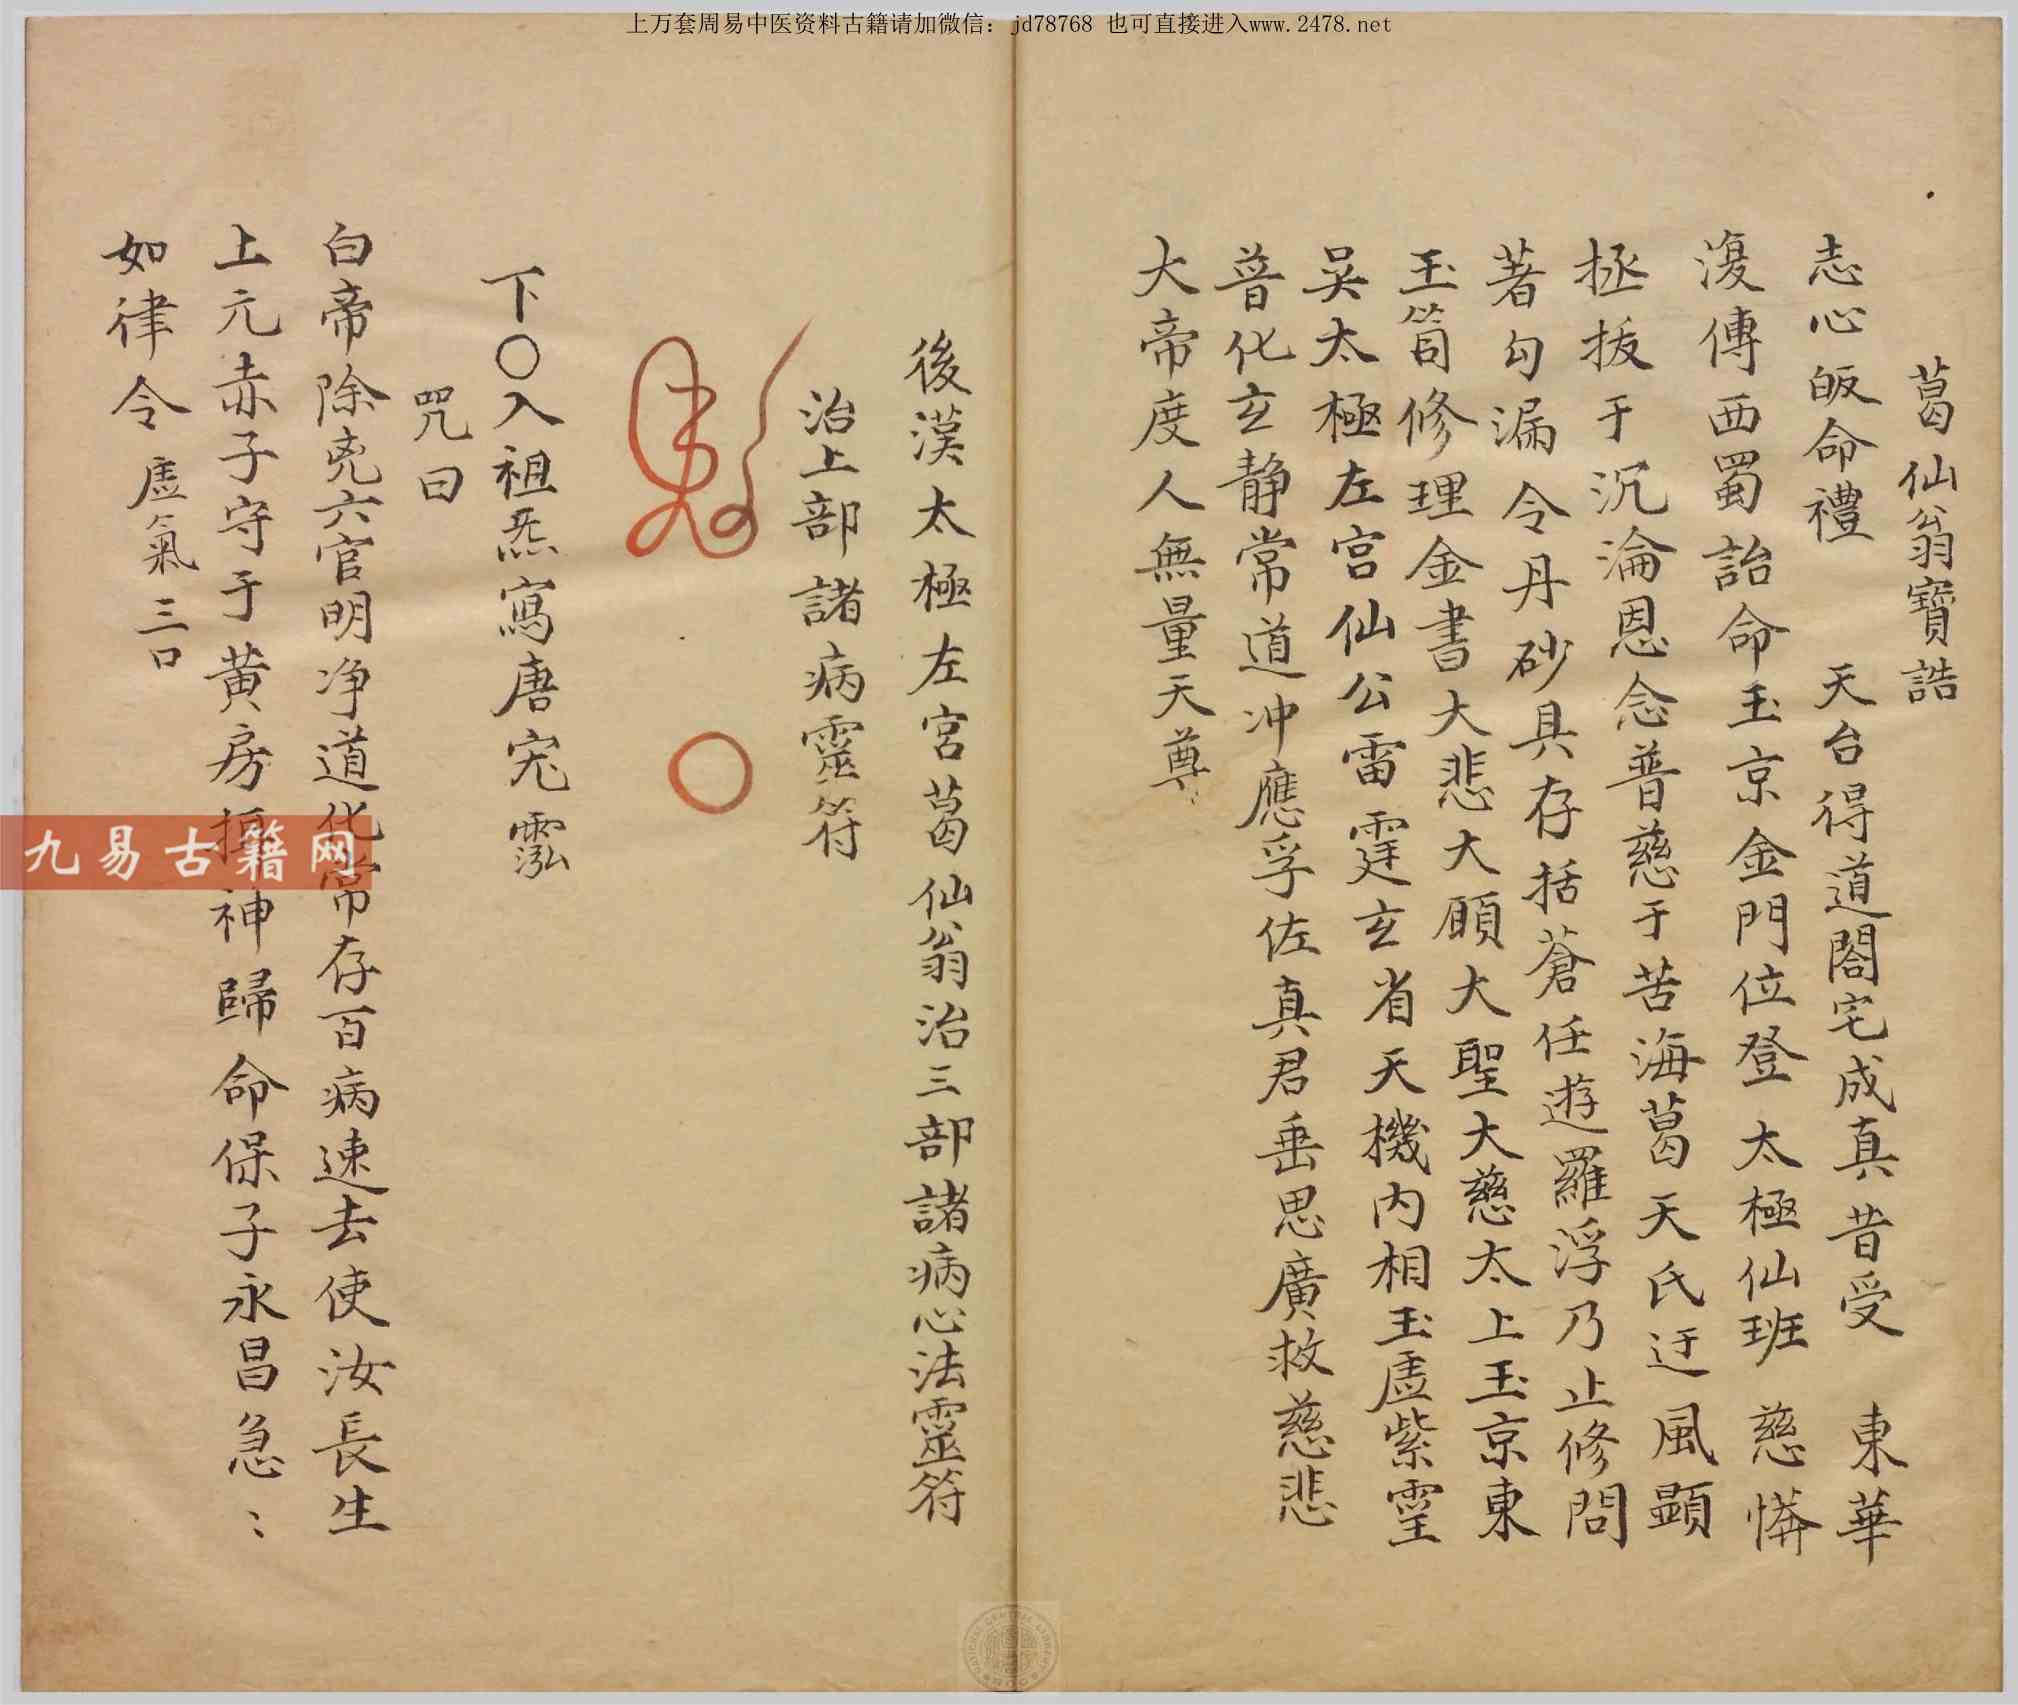 上万套周易中医资料古籍请加微信：jd78768 也可直接进入www.2478.net
葛仙翁寶誥
志心皈命禮 天台得道閣宅成真昔受 東華
復傳西蜀詒命玉京金門位登太極仙班 慈
拯拔于沉淪恩念普慈于苦海葛天氏迂風顯
著勾漏令丹砂具存括蒼任遊羅浮乃止修問
玉笥修理金書大悲大願大聖大慈太上玉京東
吳太極左宮仙公雷霆玄省天機內相玉虛紫靈
普化玄靜常道冲應孚佐真君垂思廣救慈悲
大帝度人無量天尊
後漢太極左宮葛仙翁治三部諸病心法靈符
治上部諸病靈符
下〇入祖炁寫唐宄霐
咒曰
白帝除兇六宮明净道化常存百病速去使汝長生
上元赤子守于黄房 神歸命保子永昌急〻
如律令 虛氣三口
九易古籍网